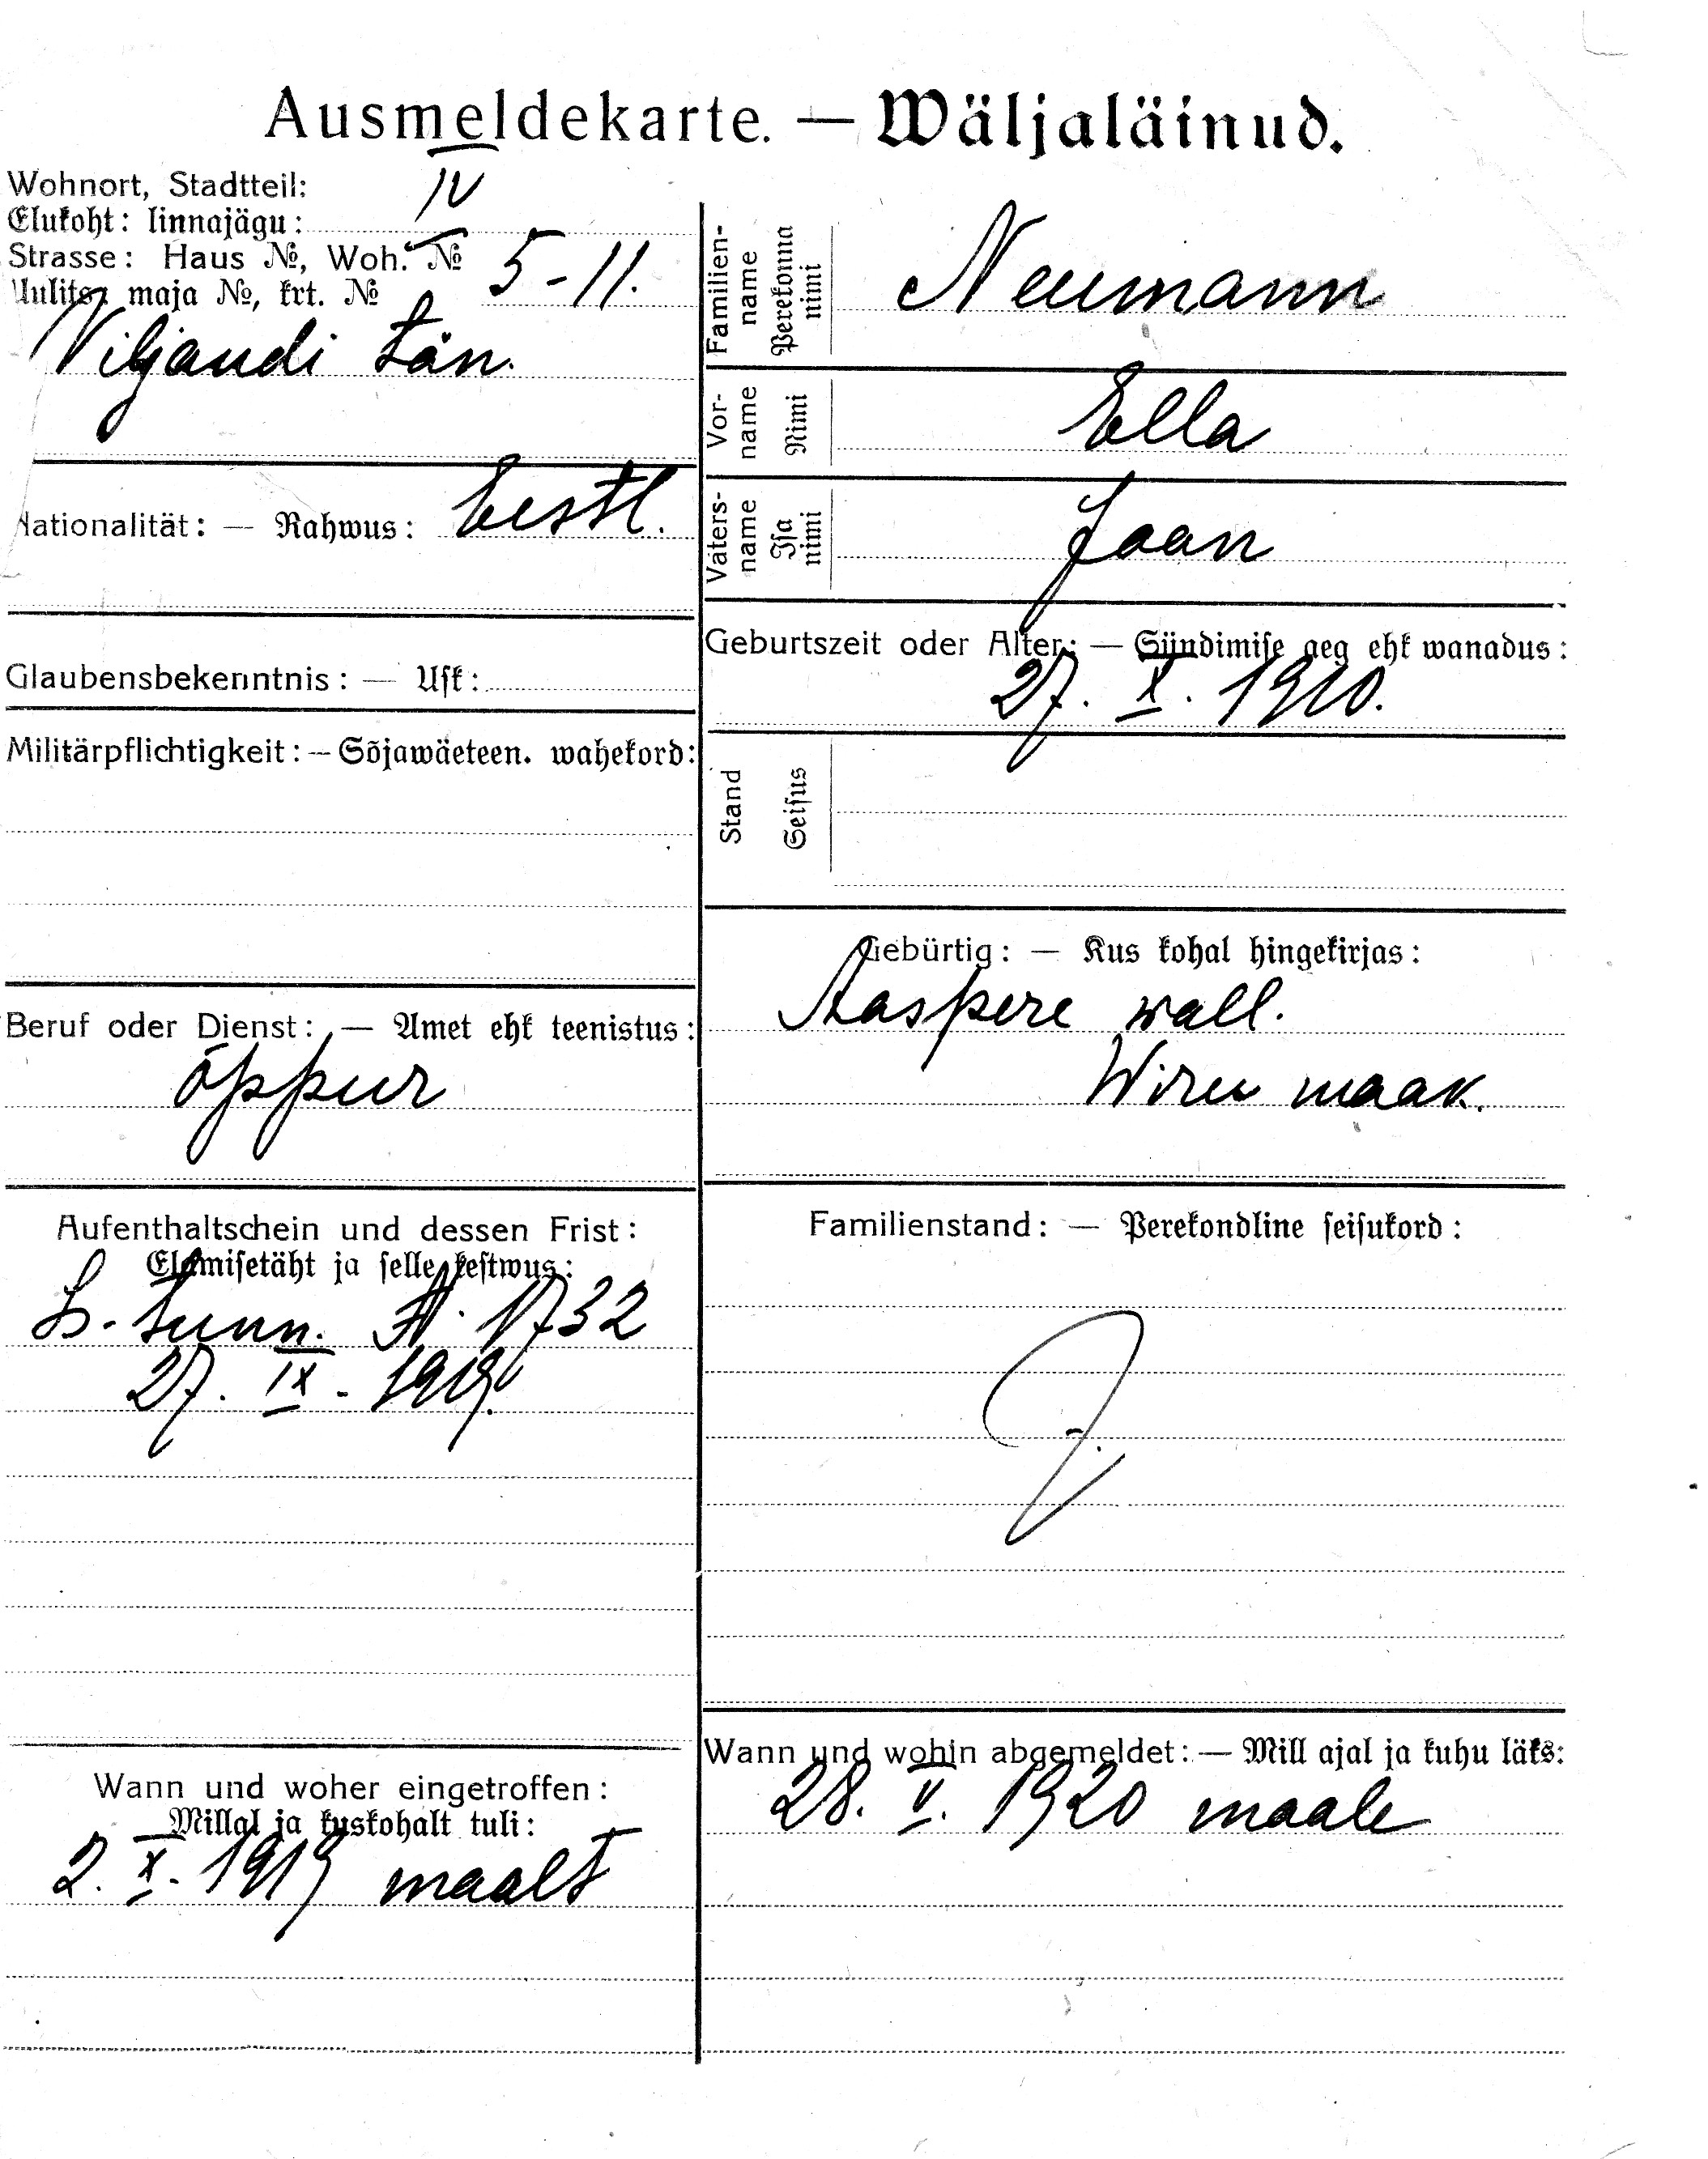 Ausmeldekarte. — Wäljaläinud.
Wohnort, Stadtteil: IV
Elukoht: linnajägu:
Strasse: Haus №, Woh. № 5-11.
Uulits, maja №, krt. №
Viljandi tän.
Nationalität: — Rahwus: Eestl.
Glaubensbekenntnis: — Usk:
Militärpflichtigkeit: — Sõjawäeteen. wahekord:
Beruf oder Dienst: — Amet ehk teenistus:
õppur
Aufenthaltschein und dessen Frist:
Elamisetäht ja selle kestwus:
S. tunn. № 1732
27. IX. 1919.
Wann und woher eingetroffen:
Millal ja kuskohalt tuli:
2. X. 1919 maalt
Familien-name
Perekonna nimi
Neumann
Vor-name
Nimi
Ella
Vaters-name
Isa nimi
Jaan
Geburtszeit oder Alter: — Sündimise aeg ehk wanadus:
27. X. 1910.
Stand
Seisus
Gebürtig: — Kus kohal hingekirjas:
Aaspere wall.
Wiru maak.
Familienstand: — Perekondline seisukord:
Wann und wohin abgemeldet: — Mill ajal ja kuhu läks:
28. V. 1920 maale